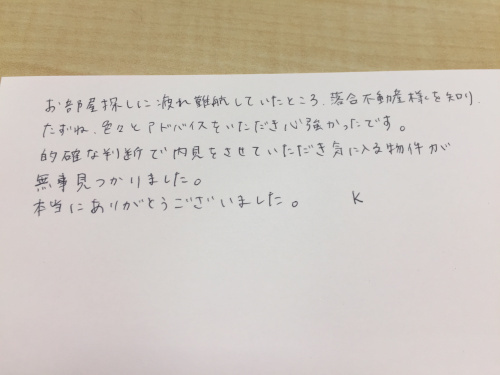 お部屋探しに疲れ難航していたところ、落合不動産様を知り、
たずね、色々とアドバイスをいただき心強かったです。
的確な判断で内見をさせていただき気に入る物件が
無事見つかりました。
本当にありがとうございました。 K